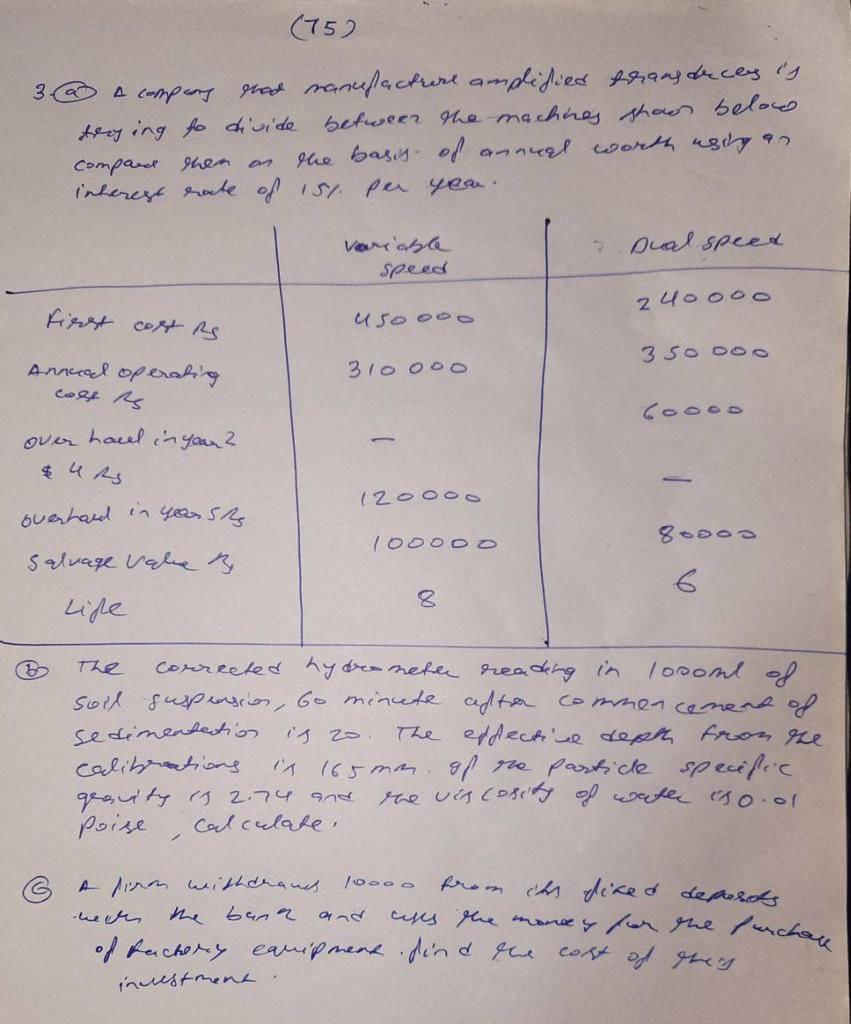 (75)
3.(a) A company that manufacture amplified transducers is
trying to divide between the machines shown below
compare them on the basis of annual worth using an
interest rate of 15% per year.
Variable speed
Dual speed
First cost Rs 450000 240000
Annual operating cost Rs 310000 350000
over haul in year 2 & 4 Rs - 60000
overhaul in year 5 Rs 120000 -
Salvage Value Rs 100000 80000
Life 8 6
(b) The corrected hydrometer reading in 1000ml of
soil suspension, 60 minute after commencement of
sedimentation is 20. The effective depth from the
calibrations is 165 mm. If the particle specific
gravity is 2.74 and the viscosity of water is 0.01
Poise, calculate.
(c) A firm withdraws 10000 from its fixed deposits
the bank and uses the money for the purchase
of factory equipment. find the cost of this
investment.